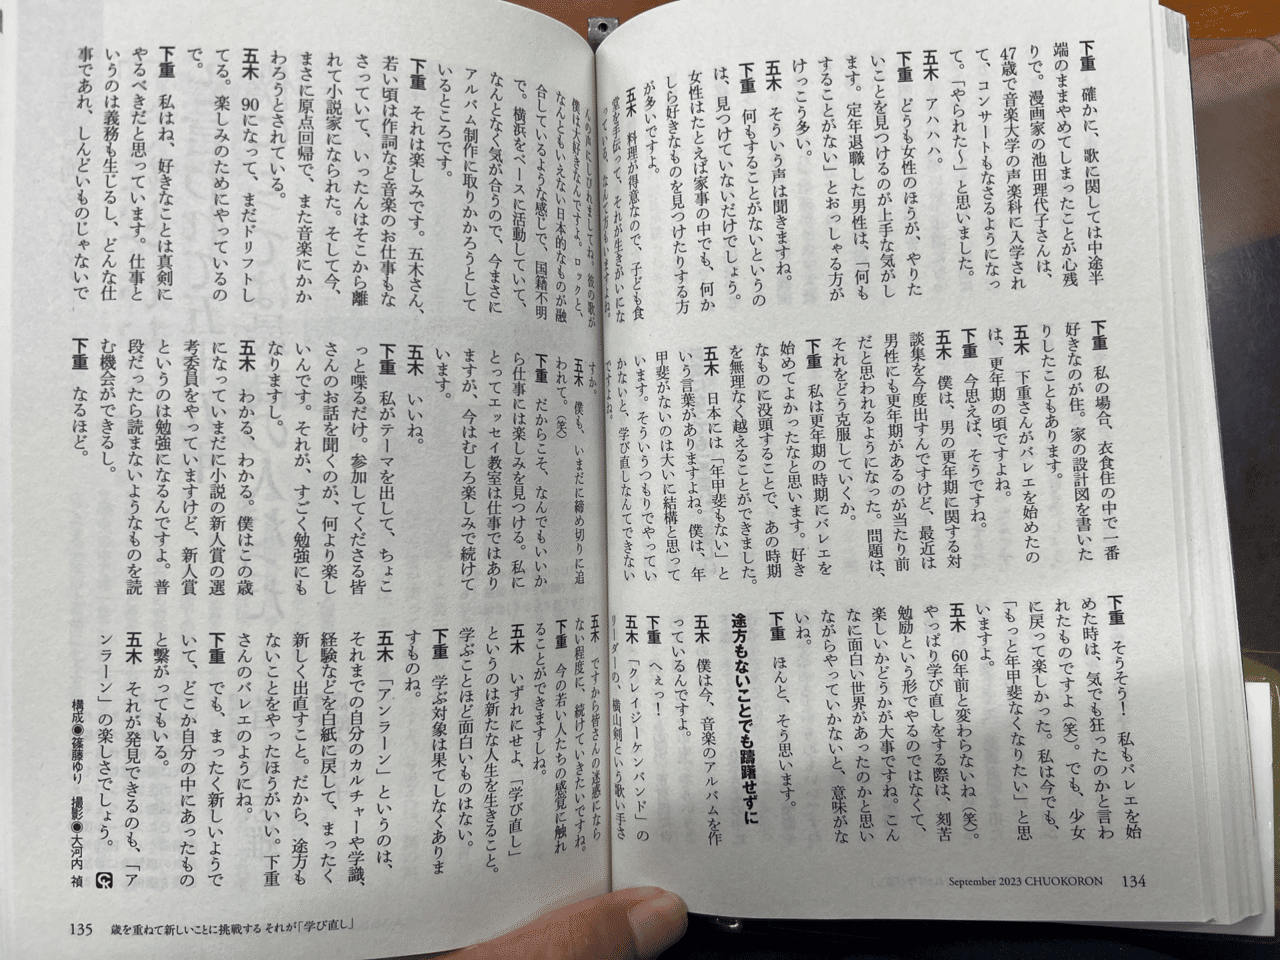 下重　確かに、歌に関しては中途半
端のままやめてしまったことが心残
りで。漫画家の池田理代子さんは、
47歳で音楽大学の声楽科に入学され
て、コンサートもなさるようになっ
て。「やられた〜」と思いました。
五木　アハハハ。
下重　どうも女性のほうが、やりた
いことを見つけるのが上手な気がし
ます。定年退職した男性は、「何も
することがない」とおっしゃる方が
けっこう多い。
五木　そういう声は聞きますね。
下重　何もすることがないというの
は、見つけていないだけでしょう。
女性はたとえば家事の中でも、何か
しら好きなものを見つけたりする方
が多いですよ。
五木　料理が得意なので、子ども食
堂を手伝って、それが生きがいにな
っている、なんて方もいますよね。
下重　私の場合、衣食住の中で一番
好きなのが住。家の設計図を書いた
りしたこともあります。
五木　下重さんがバレエを始めたの
は、更年期の頃ですよね。
下重　今思えば、そうですね。
五木　僕は、男の更年期に関する対
談集を今度出すんですけど、最近は
男性にも更年期があるのが当たり前
だと思われるようになった。問題は、
それをどう克服していくか。
下重　私は更年期の時期にバレエを
始めてよかったなと思います。好き
なものに没頭することで、あの時期
を無理なく越えることができました。
五木　日本には「年甲斐もない」と
いう言葉がありますよね。僕は、年
甲斐がないのは大いに結構と思って
います。そういうつもりでやってい
かないと、学び直しなんてできない
ですよね。
下重　そうそう！　私もバレエを始
めた時は、気でも狂ったのかと言わ
れたものですよ（笑）。でも、少女
に戻って楽しかった。私は今でも、
「もっと年甲斐なくなりたい」と思
いますよ。
五木　60年前と変わらないね（笑）。
やっぱり学び直しをする際は、刻苦
勉励という形でやるのではなくて、
楽しいかどうかが大事ですね。こん
なに面白い世界があったのかと思い
ながらやっていかないと、意味がな
いね。
下重　ほんと、そう思います。
途方もないことでも躊躇せずに
五木　僕は今、音楽のアルバムを作
っているんですよ。
下重　へぇっ！
五木　「クレイジーケンバンド」の
リーダーの、横山剣という歌い手さ
September 2023 CHUOKORON 134
んの声にしびれましてね。彼の歌が
僕は大好きなんですよ。ロックと、
なんともいえない日本的なものが融
合しているような感じで、国籍不明
で。横浜をベースに活動していて、
なんとなく気が合うので、今まさに
アルバム制作に取りかかろうとして
いるところです。
下重　それは楽しみです。五木さん、
若い頃は作詞など音楽のお仕事もな
さっていて、いったんはそこから離
れて小説家になられた。そして今、
まさに原点回帰で、また音楽にかか
わろうとされている。
五木　90になって、まだドリフトし
てる。楽しみのためにやっているの
で。
下重　私はね、好きなことは真剣に
やるべきだと思っています。仕事と
いうのは義務も生じるし、どんな仕
事であれ、しんどいものじゃないで
すか。
五木　僕も、いまだに締め切りに追
われて。（笑）
下重　だからこそ、なんでもいいか
ら仕事には楽しみを見つける。私に
とってエッセイ教室は仕事ではあり
ますが、今はむしろ楽しみで続けて
います。
五木　いいね。
下重　私がテーマを出して、ちょこ
っと喋るだけ。参加してくださる皆
さんのお話を聞くのが、何より楽し
いんです。それが、すごく勉強にも
なりますし。
五木　わかる、わかる。僕はこの歳
になっていまだに小説の新人賞の選
考委員をやっていますけど、新人賞
というのは勉強になるんですよ。普
段だったら読まないようなものを読
む機会ができるし。
下重　なるほど。
五木　ですから皆さんの迷惑になら
ない程度に、続けていきたいですね。
下重　今の若い人たちの感覚に触れ
ることができますしね。
五木　いずれにせよ、「学び直し」
というのは新たな人生を生きること。
学ぶことほど面白いものはない。
下重　学ぶ対象は果てしなくありま
すものね。
五木　「アンラーン」というのは、
それまでの自分のカルチャーや学識、
経験などを白紙に戻して、まったく
新しく出直すこと。だから、途方も
ないことをやったほうがいい。下重
さんのバレエのようにね。
下重　でも、まったく新しいようで
いて、どこか自分の中にあったもの
と繋がってもいる。
五木　それが発見できるのも、「ア
ンラーン」の楽しさでしょう。
構成◉篠藤ゆり　撮影◉大河内 禎
135 歳を重ねて新しいことに挑戦する それが「学び直し」